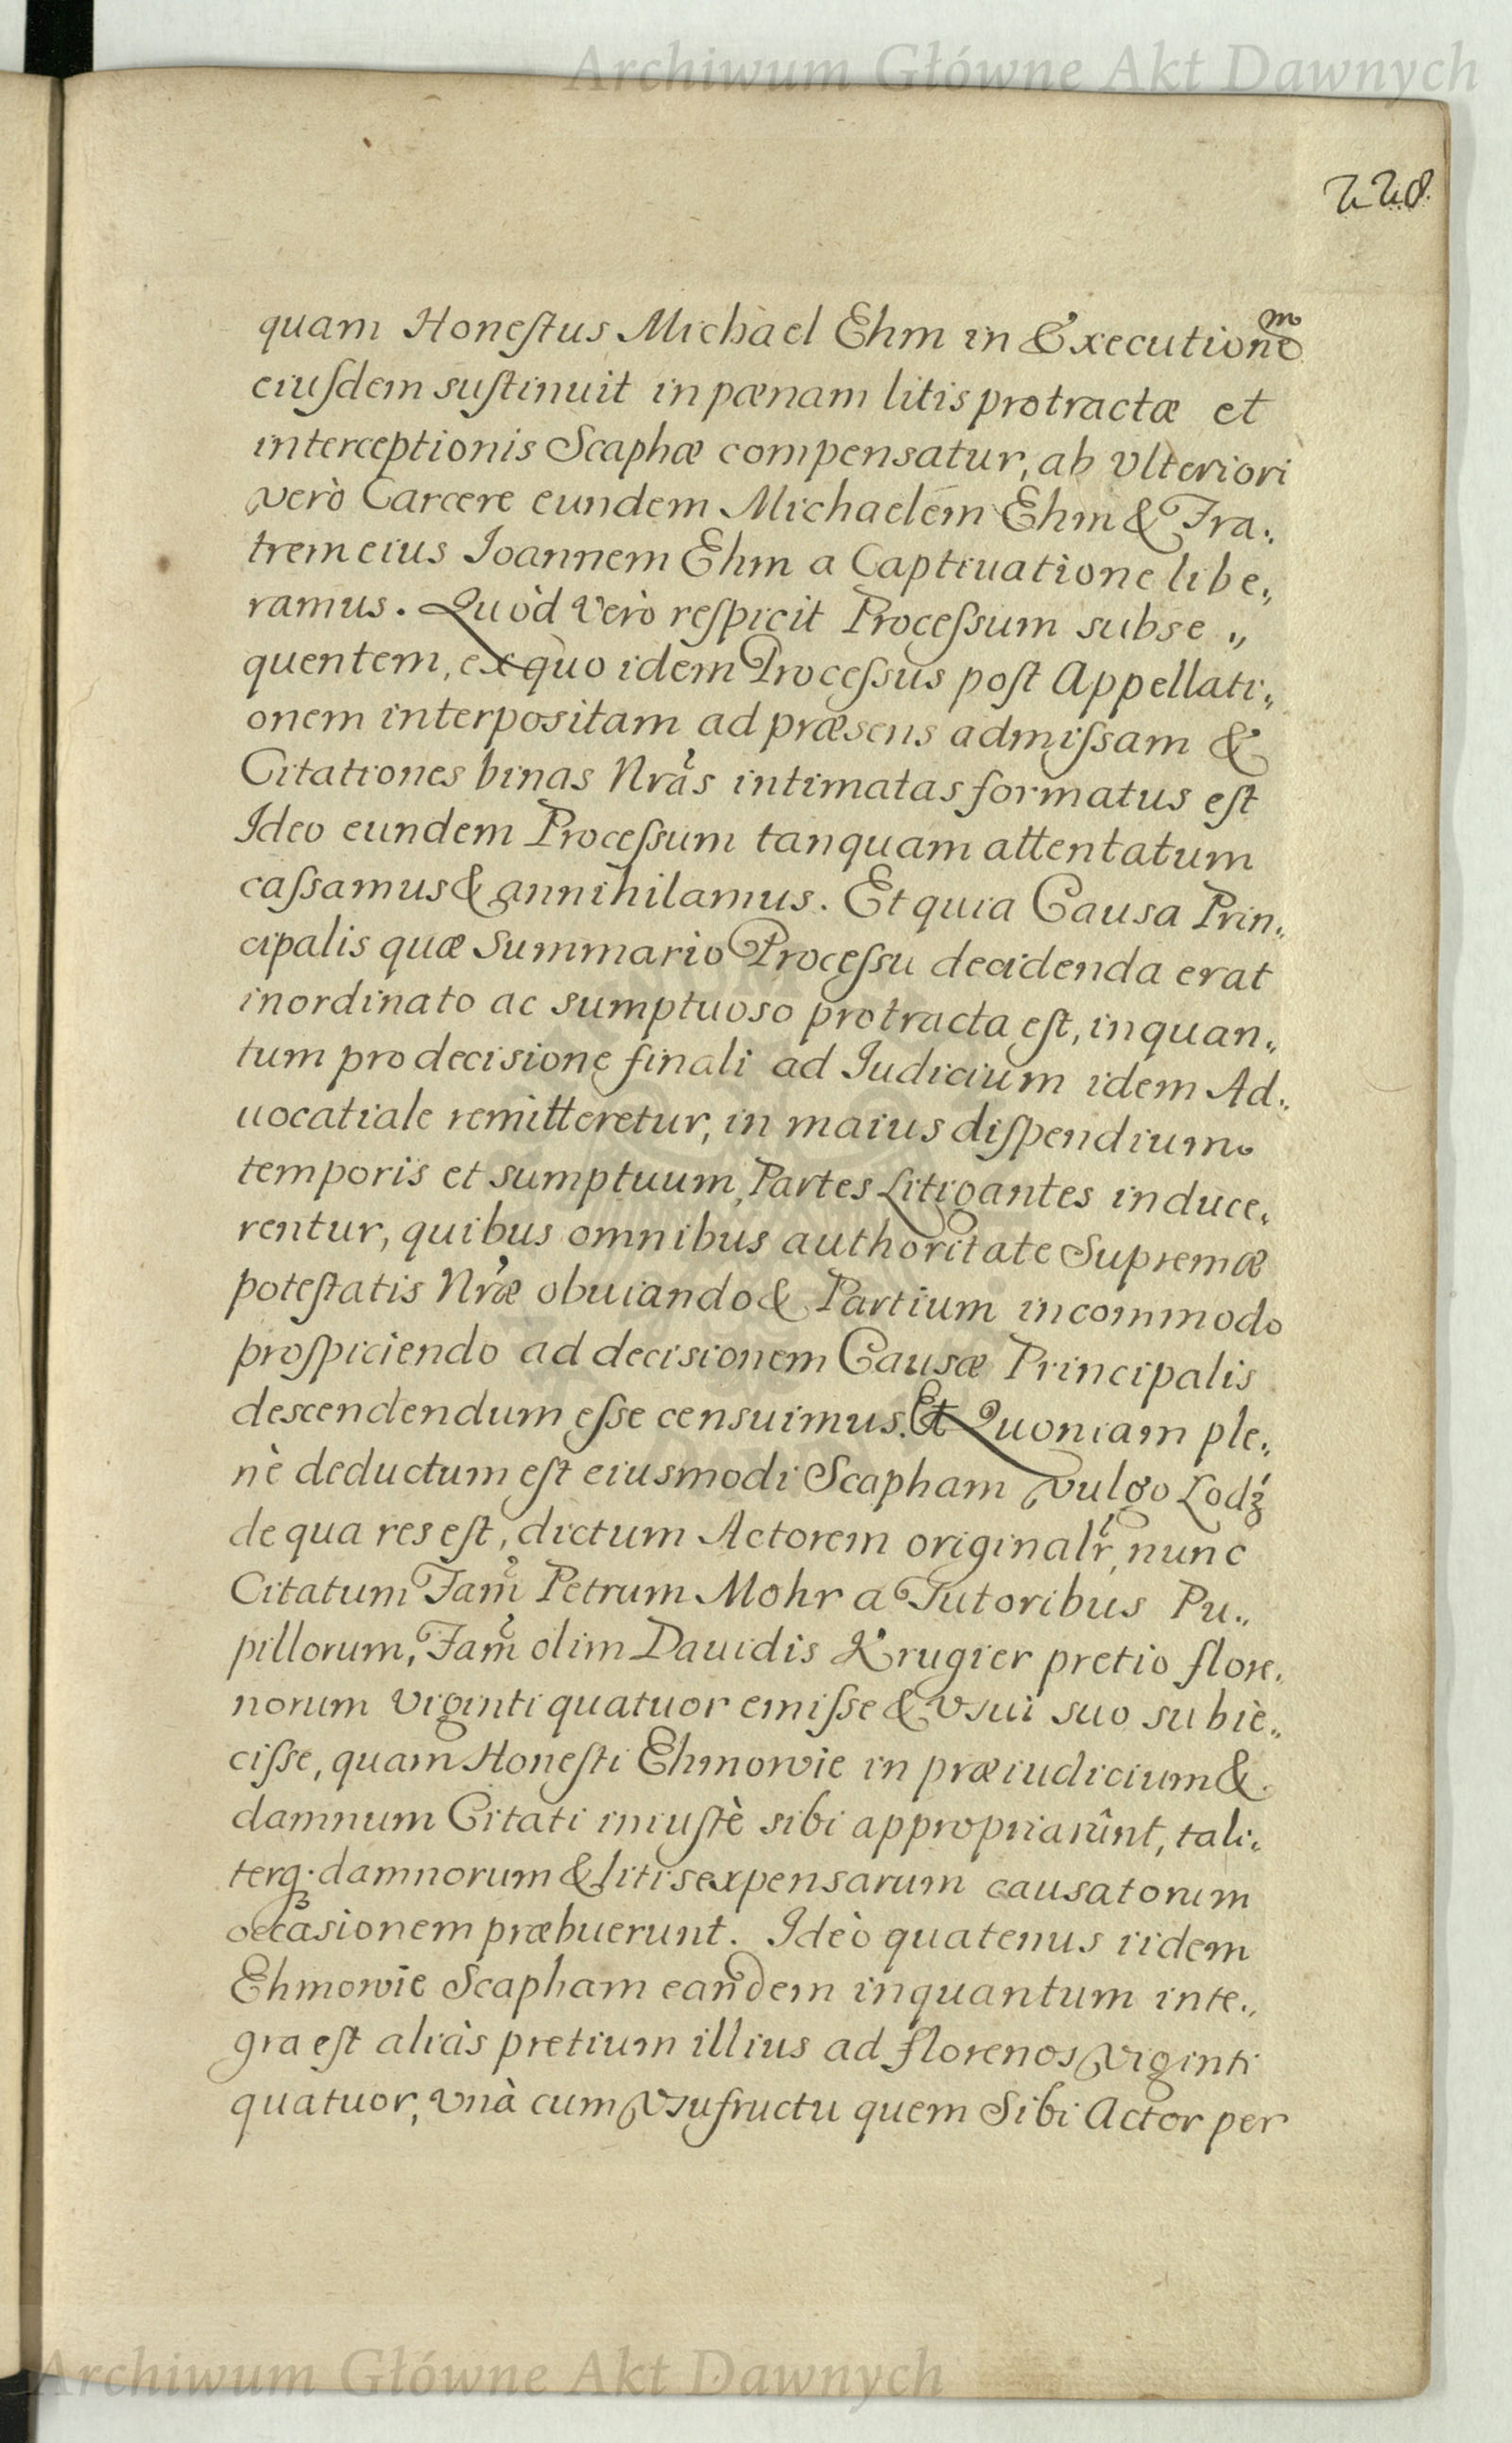 Archiwum Główne Akt Dawnych
228.
quam Honeſtus Michael Ehm in Executioneͫ
eiuſdem suſtinuit in pœnam litis protractæ et
interceptionis Scaphæ compensatur, ab Vlteriori
verò Carcere eundem Michaelem Ehm & Fra„
trem eius Joannem Ehm a Captiuatione libe„
ramus. Quòd Verò reſpicit Proceſsum subse„
quentem, ex quo idem Proceſsus poſt Appellati„
onem interpositam ad præsens admiſsam &
Citationes binas Nrãs intimatas formatus eſt
Ideo eundem Proceſsum tanquam attentatum
caſsamus & annihilamus. Et quia Causa Prin„
cipalis quæ Summario Proceſsu decidenda erat
inordinato ac sumptuoso protracta eſt, inquan„
tum pro decisione finali ad Judicium idem Ad„
uocatiale remitteretur, in maius diſpendium
temporis et sumptuum, Partes Litigantes induce„
rentur, quibus omnibus authoritate Supremæ
poteſtatis Nræ obuiando & Partium incommodo
proſpiciendo ad decisionem Causæ Principalis
descendendum eſse censuimus. Et Quoniam ple„
nè deductum eſt eiusmodi Scapham vulgo Lodź
de qua res eſt, dictum Actorem originalr̃, nunc
Citatum Fam̃ Petrum Mohr a Tutoribus Pu„
pillorum, Fam̃ olim Dauidis Krugier pretio flore„
norum Viginti quatuor emiſse & Vsui suo subiè„
ciſse, quam Honeſti Ehmowie in præiudicium &
damnum Citati iniuſtè sibi appropriarûnt, tali„
terq3 damnorum & litis expensarum causatorum
occãsionem præbuerunt. Ideò quatenus iidem
Ehmowie Scapham eandem inquantum inte„
gra eſt aliàs pretium illius ad florenos Viginti
quatuor, Vnà cum Vsufructu quem Sibi Actor per
Archiwum Główne Akt Dawnych